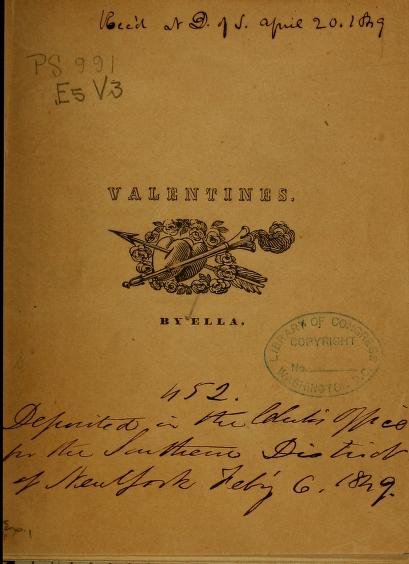 Rec'd at D. of S. April 20. 1849
PS 991
E5 V3
VALENTINES.
BY ELLA.
LIBRARY OF CONGRESS
COPYRIGHT
No.
WASHINGTON, D.C.
452.
Deposited in the Clerk's Office
for the Southern District
of New York Feby 6. 1849.